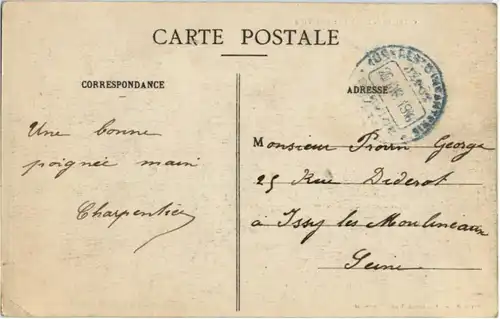 CARTE POSTALE
CORRESPONDANCE
ADRESSE
Une bonne
poignée main
Charpentier
Monsieur Prom George
25 Rue Diderot
à Issy les Moulineaux
Seine